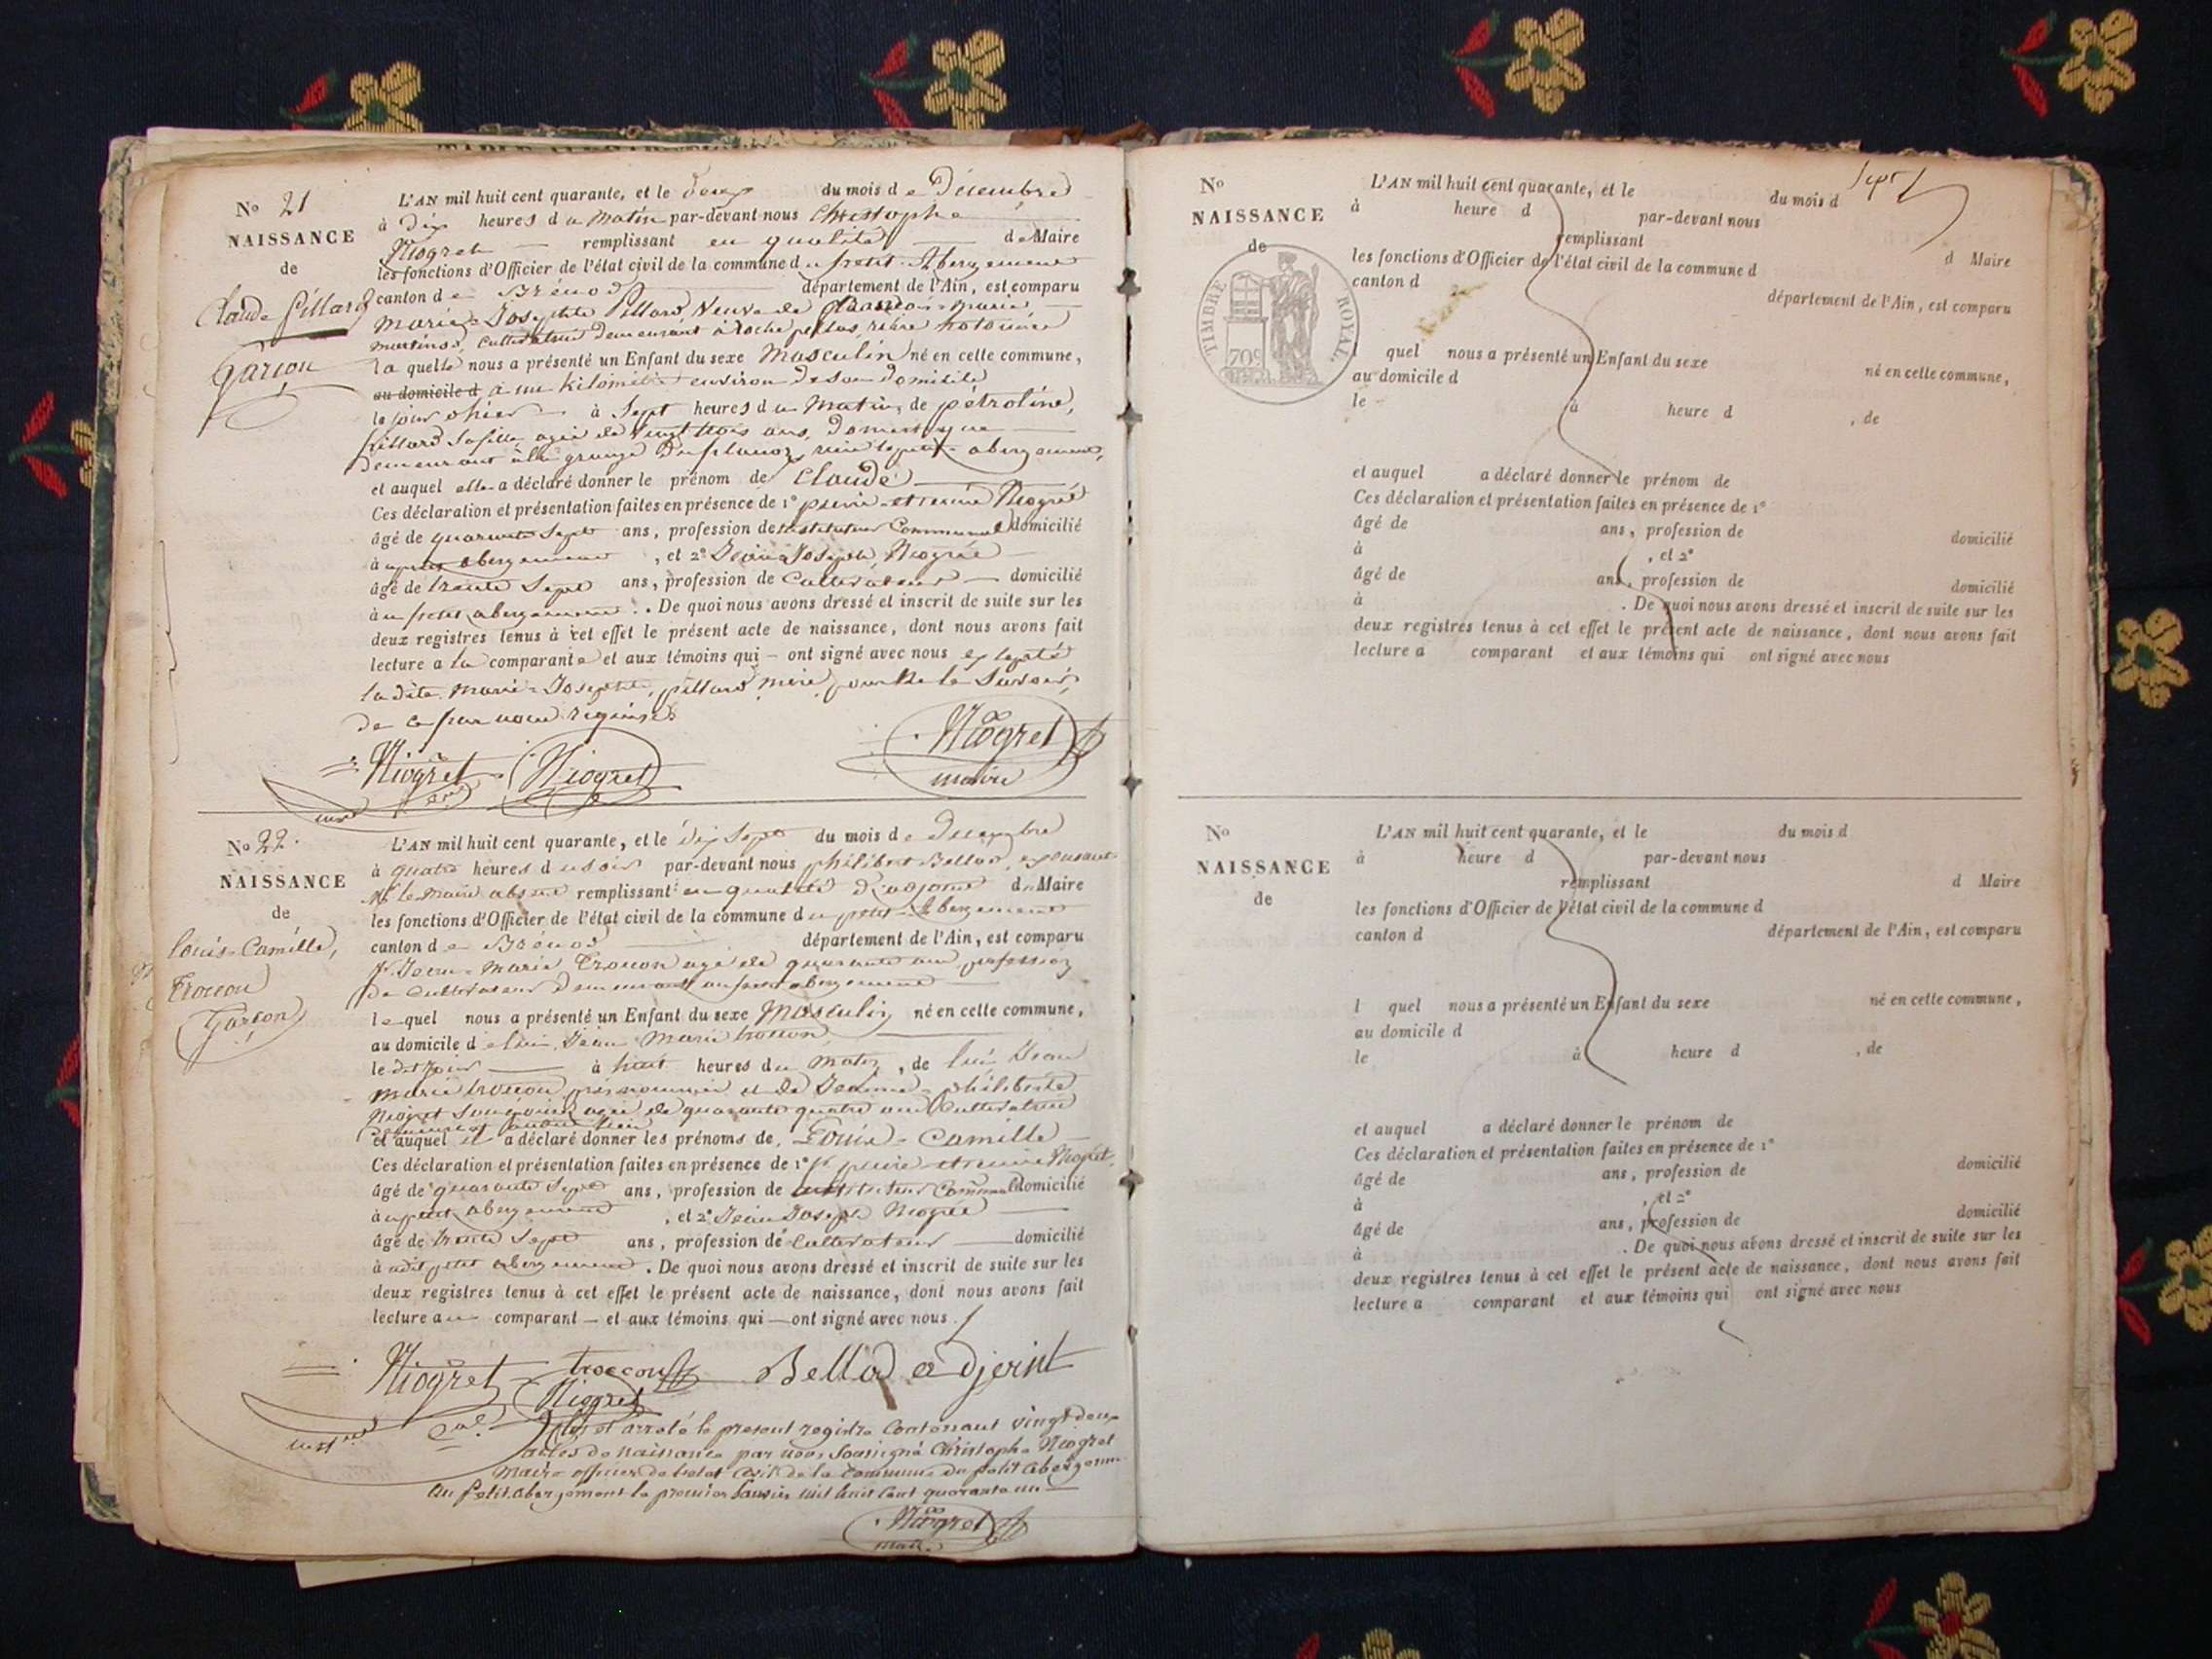 N° 21
NAISSANCE
de
Claude Pillard
Garçon
L'AN mil huit cent quarante, et le deux du mois de Décembre
à dix heures du Matin par-devant nous Christophe
Niogret remplissant en qualité de Maire
les fonctions d'Officier de l'état civil de la commune du petit-Abergement
canton de Brénod département de l'Ain, est comparu
Marie-Josephte Pillard, Veuve de François-Marie
Cultivatrice demeurant à Roche rière hotonne
la quelle nous a présenté un Enfant du sexe Masculin né en cette commune,
au domicile d à un kilomètre environ de son domicile
le jour d'hier à Sept heures du Matin, de pétroline,
pillard Sa fille agée de Vingt trois ans, Domestique
Demeurant à la grange Du planoz, rière le petit abergement,
et auquel elle a déclaré donner le prénom de Claude
Ces déclaration et présentation faites en présence de 1° pierre-etienne Niogret
âgé de quarante Sept ans, profession de instituteur Communal domicilié
au petit abergement, et 2° Jean-Joseph, Niogret
âgé de trente Sept ans, profession de Cultivateur domicilié
au petit abergement. De quoi nous avons dressé et inscrit de suite sur les
deux registres tenus à cet effet le présent acte de naissance, dont nous avons fait
lecture a la comparante et aux témoins qui ont signé avec nous excepté
la dite Marie-Josephte, pillard mère pour ne le Savoir,
de ce par nous requise
Niogret Niogret Niogret
maire
N° 22.
NAISSANCE
de
Louis-Camille,
Troccon
Garçon
L'AN mil huit cent quarante, et le dix Sept du mois de Decembre
à quatre heures du soir par-devant nous philibert Bellod,
Mr le Maire absent remplissant en qualité d'adjoint du Maire
les fonctions d'Officier de l'état civil de la commune du petit-Abergement
canton de Brénod département de l'Ain, est comparu
Sr Jean-Marie Troccon agé de quarante ans, profession
De Cultivateur demeurant au petit abergement
lequel nous a présenté un Enfant du sexe Masculin né en cette commune,
au domicile de lui, Jean Marie troccon
le dit jour à huit heures du matin, de lui Jean
Marie troccon, prénommé et de Jeanne-philiberte
Niogret Son épouse agée de quarante quatre ans Cultivatrice
Demeurant
et auquel il a déclaré donner les prénoms de, Louis-Camille
Ces déclaration et présentation faites en présence de 1° Sr pierre-etienne Niogret,
âgé de quarante Sept ans, profession de instituteur Communal domicilié
au petit abergement, et 2° Jean Joseph Niogret
âgé de trente Sept ans, profession de Cultivateur domicilié
au dit petit abergement. De quoi nous avons dressé et inscrit de suite sur les
deux registres tenus à cet effet le présent acte de naissance, dont nous avons fait
lecture au comparant et aux témoins qui ont signé avec nous.
Niogret troccon Bellod adjoint
Niogret
Clos et arreté le present registre Contenant Vingt deux
actes de naissance par nous Soussigné Christophe Niogret
Maire officier de l'etat civil de la commune du petit abergement
Au petit abergement le premier Janvier mil huit Cent quarante un
Niogret
maire
Sept
N°
NAISSANCE
de
TIMBRE ROYAL
70c
L'AN mil huit cent quarante, et le du mois d
à heure d par-devant nous
remplissant d Maire
les fonctions d'Officier de l'état civil de la commune d
canton d département de l'Ain, est comparu
l quel nous a présenté un Enfant du sexe né en cette commune,
au domicile d
le à heure d , de
et auquel a déclaré donner le prénom de
Ces déclaration et présentation faites en présence de 1°
âgé de ans, profession de domicilié
à , et 2°
âgé de ans, profession de domicilié
à . De quoi nous avons dressé et inscrit de suite sur les
deux registres tenus à cet effet le présent acte de naissance, dont nous avons fait
lecture a comparant et aux témoins qui ont signé avec nous
N°
NAISSANCE
de
L'AN mil huit cent quarante, et le du mois d
à heure d par-devant nous
remplissant d Maire
les fonctions d'Officier de l'état civil de la commune d
canton d département de l'Ain, est comparu
l quel nous a présenté un Enfant du sexe né en cette commune,
au domicile d
le à heure d , de
et auquel a déclaré donner le prénom de
Ces déclaration et présentation faites en présence de 1°
âgé de ans, profession de domicilié
à , et 2°
âgé de ans, profession de domicilié
à . De quoi nous avons dressé et inscrit de suite sur les
deux registres tenus à cet effet le présent acte de naissance, dont nous avons fait
lecture a comparant et aux témoins qui ont signé avec nous